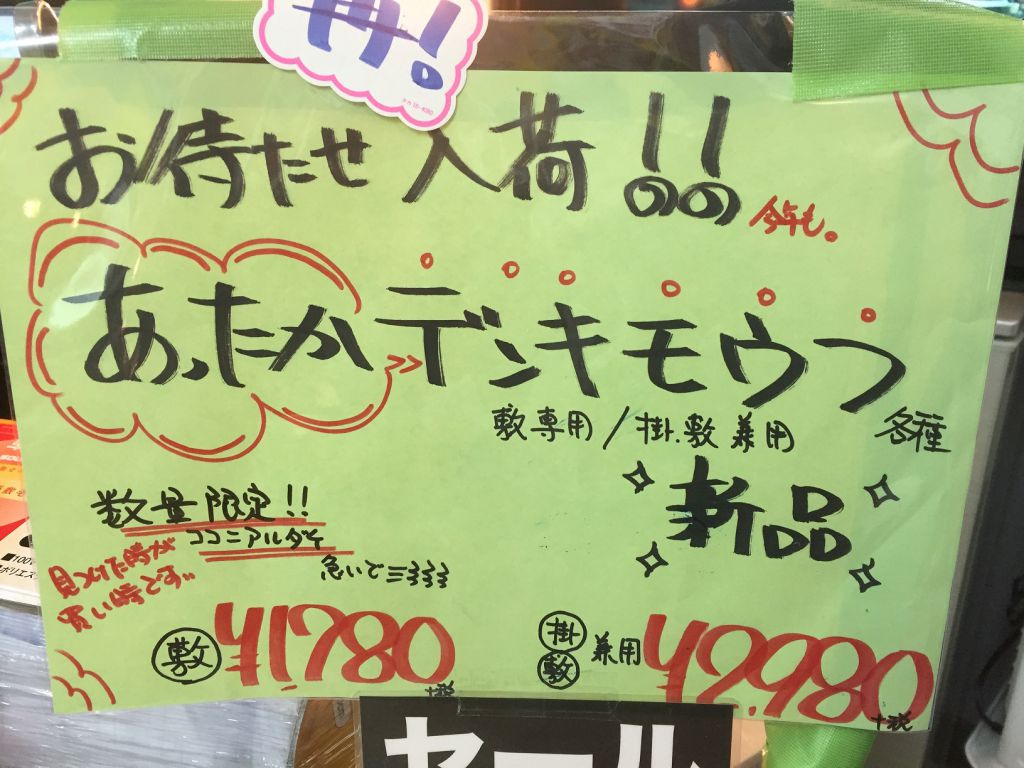 再!
お待たせ入荷!!
今年も。
あったかデンキモウフ
敷専用/掛.敷兼用 各種
新品
数量限定!!
ココニアルダケ
急いで
見つけた時が
買い時です。
敷
+税
掛
敷
兼用
+税
セール